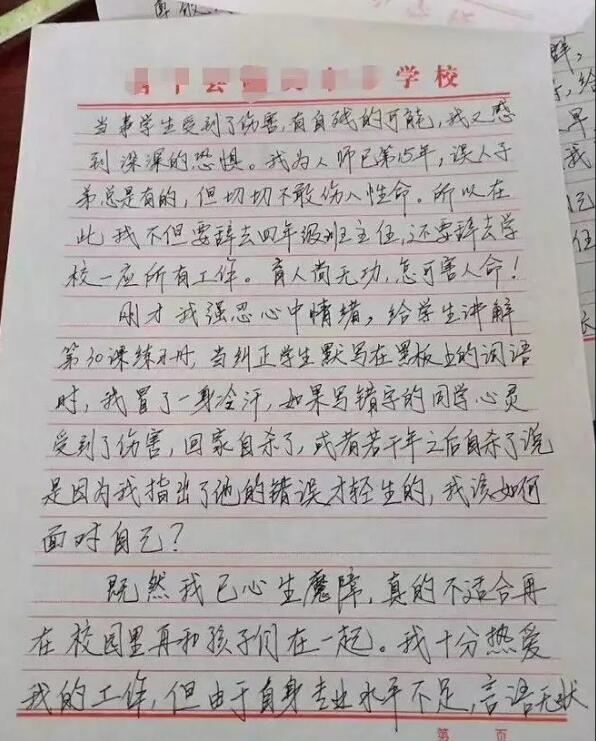 学校
当事学生受到了伤害,有自残的可能,我又感
到深深的恐惧。我为人师已第15年,误人子
弟总是有的,但切切不敢伤人性命。所以在
此我不但要辞去四年级班主任,还要辞去学
校一应所有工作。育人尚无功,怎可害人命!
刚才我强忍心中情绪,给学生讲解
第30课练习册,当纠正学生默写在黑板上的词语
时,我冒了一身冷汗,如果写错字的同学心灵
受到了伤害,回家自杀了,或者若干年之后自杀了说
是因为我指出了他的错误才轻生的,我该如何
面对自己?
既然我已心生魔障,真的不适合再
在校园里再和孩子们在一起。我十分热爱
我的工作,但由于自身专业水平不足,言语无状
第 页